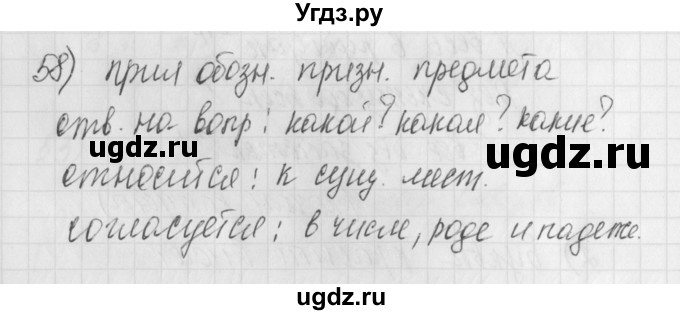 Угдз.ру
58) прил обозн. призн. предмета
отв. на вопр: какой? какая? какие?
ugdz.ru ugdz.ru
относится: к сущ. мест.
согласуется: в числе, роде и падеже.
ugdz.ru
ugdz.ru